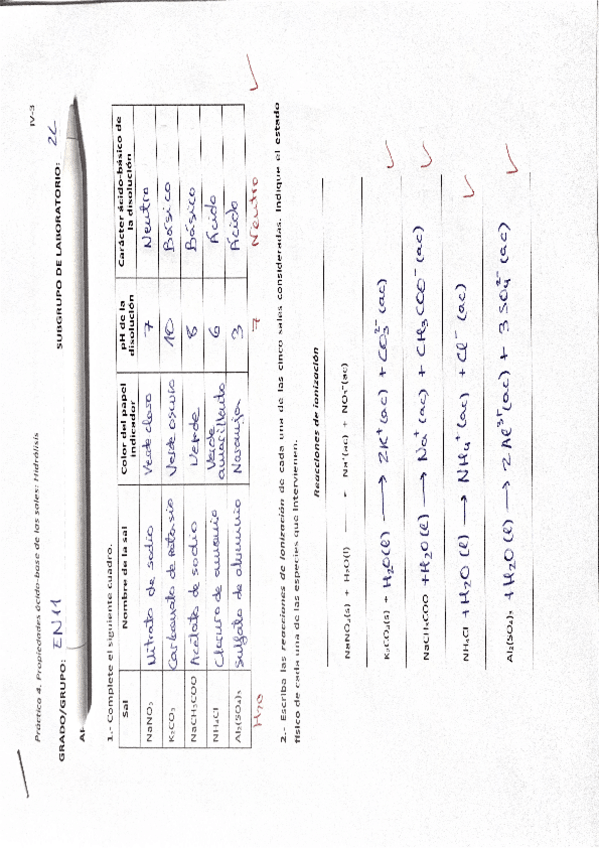 Práctica 4. Propiedades ácido-base de las sales: Hidrólisis IV-3
GRADO/GRUPO: EN11 SUBGRUPO DE LABORATORIO: 2C
1.- Complete el siguiente cuadro.
Sal Nombre de la sal Color del papel indicador pH de la disolución Carácter ácido-básico de la disolución
NaNO₃ Nitrato de sodio Verde claro 7 Neutro
K₂CO₃ Carbonato de potasio Verde oscuro 10 Básico
NaCH₃COO Acetato de sodio Verde 8 Básico
NH₄Cl Cloruro de amonio Verde amarillento 6 Ácido
Al₂(SO₄)₃ Sulfato de aluminio Naranja 3 Ácido
H₂O 7 Neutro
2.- Escriba las reacciones de ionización de cada una de las cinco sales consideradas. Indique el estado
físico de cada una de las especies que intervienen.
Reacciones de ionización
NaNO₃(s) + H₂O(l) → Na⁺(ac) + NO₃⁻(ac)
K₂CO₃(s) + H₂O(l) → 2K⁺(ac) + CO₃²⁻(ac)
NaCH₃COO + H₂O(l) → Na⁺(ac) + CH₃COO⁻(ac)
NH₄Cl + H₂O(l) → NH₄⁺(ac) + Cl⁻(ac)
Al₂(SO₄)₃ + H₂O(l) → 2Al³⁺(ac) + 3SO₄²⁻(ac)